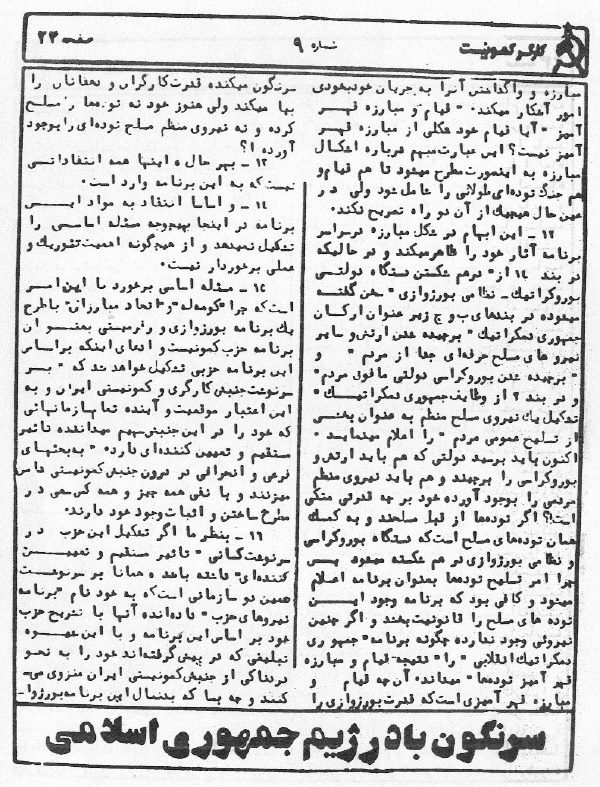 کارگر کمونیست
شماره ۹
صفحه ۲۳
مبارزه و واگذاشتن آنرا به جریان خودبخودی
امور آشکار میکند. "قیام و مبارزه قهر
آمیز" آیا قیام خود شکلی از مبارزه قهر
آمیز نیست؟ این عبارت مبهم درباره اشکال
مبارزه به اینصورت مطرح میشود تا هم قیام و
هم جنگ توده‌ای طولانی را شامل شود ولی در
عین حال هیچیک از آن دو راه تصریح نکند.
۱۲ - این ابهام در شکل مبارزه در سراسر
برنامه آثار خود را ظاهر میکند و در حالیکه
در بند ۱۴ از "درهم شکستن دستگاه دولتی
بوروکراتیک - نظامی بورژوازی" سخن گفته
میشود در بندهای ب و ج زیر عنوان ارکان
جمهوری دمکراتیک "برچیده شدن ارتش و سایر
نیروهای مسلح حرفه‌ای جدا از مردم" و
"برچیده شدن بوروکراسی دولتی مافوق مردم"
و در بند ۲ از وظایف جمهوری دمکراتیک "
تشکیل یک نیروی مسلح منظم به عنوان بخشی
از تسلیح عمومی مردم" را اعلام مینماید.
اکنون باید پرسید دولتی که هم باید ارتش و
بوروکراسی را برچیند و هم باید نیروی منظم
مردمی را بوجود آورده خود بر چه قدرتی متکی
است؟! اگر توده‌ها از قبل مسلحند و به کمک
همان توده‌های مسلح است که دستگاه بوروکراسی
و نظامی بورژوازی در هم شکسته میشود پس
چرا امر تسلیح توده‌ها بعنوان برنامه اعلام
میشود و کافی بود که برنامه وجود این
توده های مسلح را قانونیت بخشد و اگر چنین
نیروئی وجود ندارد چگونه برنامه "جمهوری
دمکراتیک انقلابی" را "نتیجه قیام و مبارزه
قهر آمیز توده‌ها" میداند آن چه قیام و
مبارزه قهر آمیزی است که قدرت بورژوازی را
سرنگون میکند قدرت کارگران و دهقانان را
بپا میکند ولی هنوز خود نه توده‌ها را مسلح
کرده و نه نیروی منظم مسلح توده‌ای را بوجود
آورده؟!
۱۳ - بهر حال اینها همه انتقاداتی
نیست که به این برنامه وارد است.
۱۴ - و اساسا انتقاد به مواد این
برنامه در اینجا بهیچوجه مسئله اساسی را
تشکیل نمیدهد و از هیچگونه اهمیت تئوریک و
عملی برخوردار نیست.
۱۵ - مسئله اساسی برخورد با این امر
است که چرا "کومه‌له" و "اتحاد مبارزان" با طرح
یک برنامه بورژوازی و رفرمیستی بعنوان
برنامه حزب کمونیست و ادعای اینکه بر اساس
این برنامه حزبی تشکیل خواهد شد که "بر
سرنوشت جنبش کارگری و کمونیستی ایران و به
این اعتبار موقعیت و آینده تمام سازمانهائی
که خود را در این جنبش سهیم میدانند تاثیر
مستقیم و تعیین کننده‌ای دارد." به بحثهای
فرعی و انحرافی در درون جنبش کمونیستی دامن
میزنند و با نفی همه چیز و همه کس سعی در
مطرح ساختن و اثبات وجود خود دارند.
۱۶ - بنظر ما اگر تشکیل این حزب در
سرنوشت کسانی "تاثیر مستقیم و تعیین
کننده‌ای" داشته باشد همانا بر سرنوشت
همین دو سازمانی است که به خود نام "برنامه
نیروهای حزب" داده‌اند آنها با تشریح حزب
خود بر اساس این برنامه و با این شیوه
تبلیغی که در پیش گرفته‌اند خود را به نحو
دردناکی از جنبش کمونیستی ایران منزوی می-
کنند و چه بسا که بدنبال این برنامه بورژوا-
سرنگون باد رژیم جمهوری اسلامی